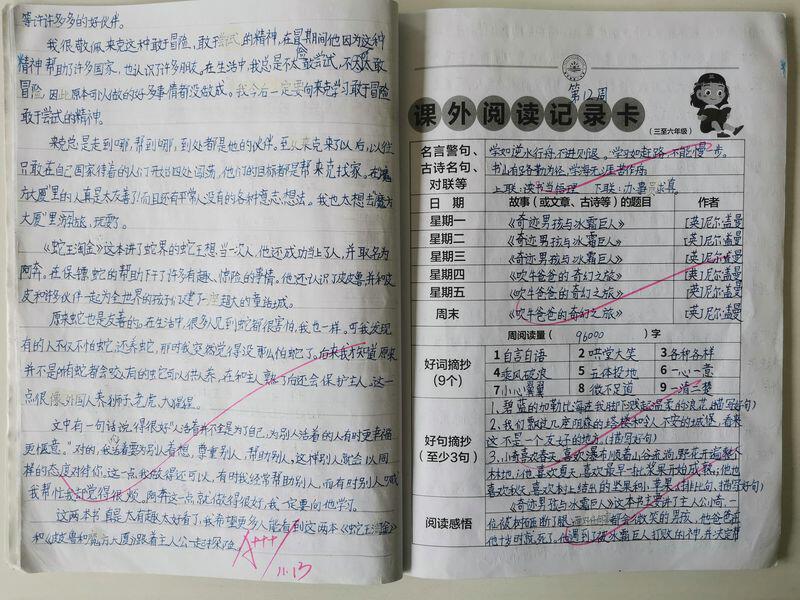 等许许多多的好伙伴。
我很敬佩来克这种敢于冒险,敢于尝试的精神,在冒险期间他因为这种
精神帮助了许多国家,也认识了许多朋友。在生活中,我总是不太敢尝试,不太敢
冒险,因此原本可以做的好多事情都没做成。我今后一定要向来克学习敢于冒险
敢于尝试的精神。
来克总是走到哪,帮到哪,到处都是他的伙伴。
只敢在自己国家待着的人们开始四处闯荡,他们的目标都是帮来克找家。在“魔
方大厦”里的人真是太友善了!而且还有平常人没有的各种意志、想法。我也太想去“魔方
大厦”里游玩、玩耍了。
《蛇王淘金》这本讲了蛇界的蛇王想当一次人,他还成功当上了人,并取名为
阿奔。在保镖蛇的帮助下干了许多有趣、惊险的事情。他还认识了皮皮鲁并和皮
皮和许多伙伴一起为全世界的孩子们建了一座超大的童话城。
原来蛇也是友善的。在生活中,很多人见到蛇都很害怕,我也一样。可我发现
有的人不仅不怕蛇,还养蛇,那时我突然觉得没那么怕蛇了。后来我才知道原来
并不是所有蛇都会咬人,有的蛇可以供人养,在和主人熟了后还会保护主人。这一
点很像外国人养狮子、老虎、大猩猩。
文中有一句话说得很好“人活着并不全是为了自己,为别人活着的人有时更幸福
更惬意。”对的,我活着要为别人着想,尊重别人,帮助别人,这样别人就会以同
样的态度对待你。这一点我做得还可以,有时我会经常帮助别人,而有时别人
我帮忙我却觉得很烦。阿奔这一点就做得很好,我一定要向他学习。
这两本书真是太有趣太好看了,我希望更多人能看到这两本《蛇王淘金》
和《皮皮鲁和魔方大厦》跟着主人公一起探险。
A+++
11.13
第12周
课外阅读记录卡
(三至六年级)
名言警句、古诗名句、对联等
学如逆水行舟,不进则退。 学习如赶路,不能慢一步。
书山有路勤为径,学海无涯苦作舟。
上联:读书当明理 下联:办事
日 期 故事(或文章、古诗等)的题目 作者
星期一 《奇迹男孩与冰霜巨人》 [英]尼尔·盖曼
星期二 《奇迹男孩与冰霜巨人》 [英]尼尔·盖曼
星期三 《奇迹男孩与冰霜巨人》 [英]尼尔·盖曼
星期四 《吹牛爸爸的奇幻之旅》 [英]尼尔·盖曼
星期五 《吹牛爸爸的奇幻之旅》 [英]尼尔·盖曼
周末 《吹牛爸爸的奇幻之旅》 [英]尼尔·盖曼
周阅读量( 96000 )字
好词摘抄(9个)
1自言自语 2哄堂大笑 3各种各样
4乘风破浪 5五体投地 6一心一意
7小心翼翼 8微不足道 9一清二楚
好句摘抄(至少3句)
1、碧蓝的加勒比海在我脚下溅起温柔的浪花。(描写好句)
2、我们飘过几座阴森的塔楼和令人不安的城堡,看来
这不是一个友好的地方。(描写好句)
3、小奇喜欢春天,喜欢瀑布顺着山谷流淌,野花开遍整个
林地;他喜欢夏天,喜欢最早一批浆果开始成熟;他也
喜欢秋天,喜欢树上结出的坚果和小苹果。(排比句、描写好句)
阅读感悟
《奇迹男孩与冰霜巨人》这本书主要讲了主人公小奇,一
位被树砸断了腿、面对什么都会微笑的男孩,他爸爸在
他十岁时就死了,他遇到了被冰霜巨人打败的神,并决定帮